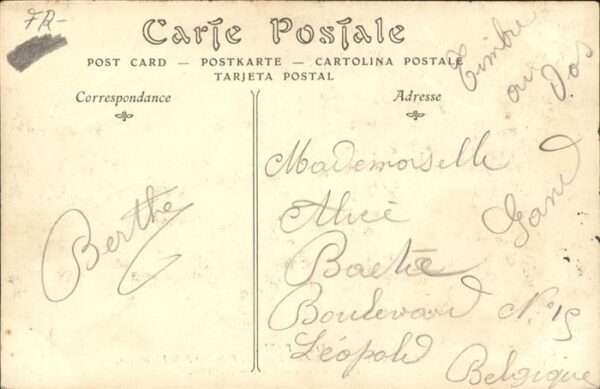 FR-
Carte Postale
POST CARD — POSTKARTE — CARTOLINA POSTALE
TARJETA POSTAL
Timbre
au
Dos
Correspondance
Adresse
Berthe
Mademoiselle
Alice
Gand
Boulevard N° 15
Léopold
Belgique